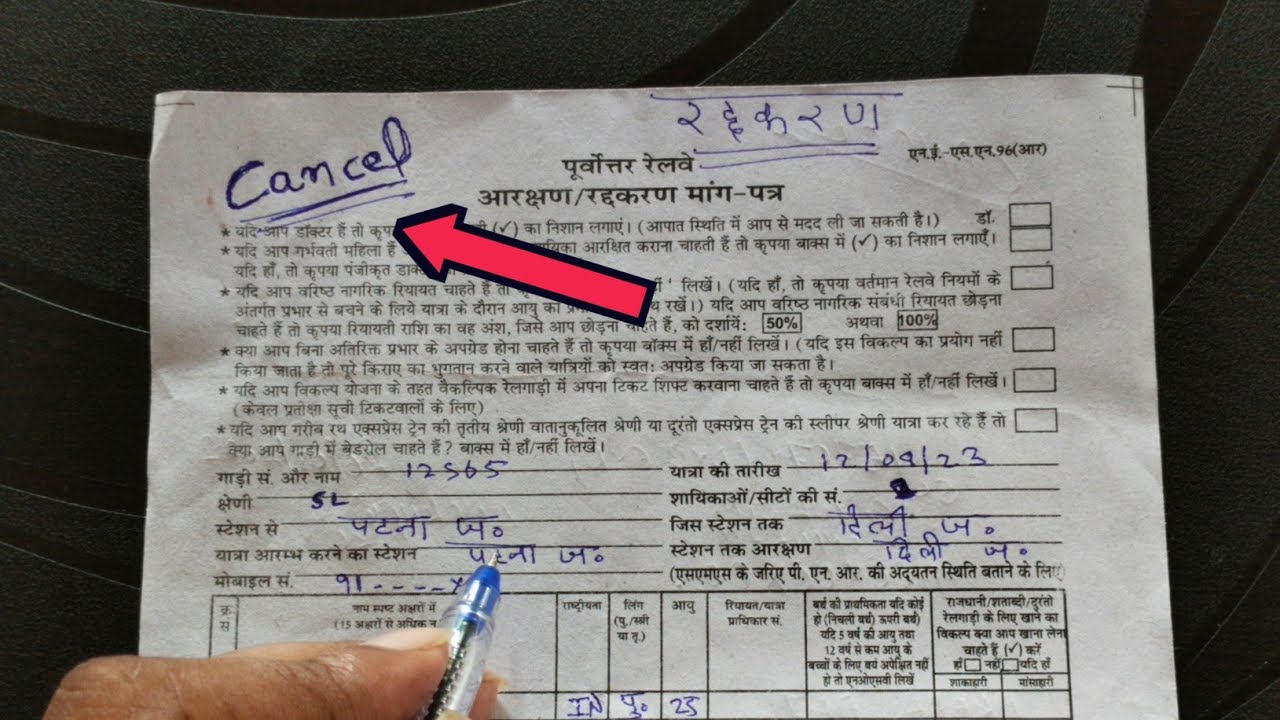 रद्दकरण
Cancel
पूर्वोत्तर रेलवे
एन.ई.-एस.एन.96(आर)
आरक्षण/रद्दकरण मांग-पत्र
* यदि आप डॉक्टर हैं तो कृपया (✓) का निशान लगाएं। (आपात स्थिति में आप से मदद ली जा सकती है।) डॉ.
* यदि आप गर्भवती महिला हैं आरक्षित कराना चाहती हैं तो कृपया बाक्स में (✓) का निशान लगाएँ।
यदि हाँ, तो कृपया पंजीकृत
* यदि आप वरिष्ठ नागरिक रियायत चाहते हैं तो लिखें। (यदि हाँ, तो कृपया वर्तमान रेलवे नियमों के
अंतर्गत प्रभार से बचने के लिये यात्रा के दौरान आयु का रखें।) यदि आप वरिष्ठ नागरिक संबंधी रियायत छोड़ना
चाहते हैं तो कृपया रियायती राशि का वह अंश, जिसे आप छोड़ना चाहते हैं, को दर्शायें: 50% अथवा 100%
* क्या आप बिना अतिरिक्त प्रभार के अपग्रेड होना चाहते हैं तो कृपया बॉक्स में हाँ/नहीं लिखें। (यदि इस विकल्प का प्रयोग नहीं
किया जाता है तो पूरे किराए का भुगतान करने वाले यात्रियों को स्वत: अपग्रेड किया जा सकता है।
* यदि आप विकल्प योजना के तहत वैकल्पिक रेलगाड़ी में अपना टिकट शिफ्ट करवाना चाहते हैं तो कृपया बाक्स में हाँ/नहीं लिखें।
(केवल प्रतीक्षा सूची टिकटवालों के लिए)
* यदि आप गरीब रथ एक्सप्रेस ट्रेन की तृतीय श्रेणी वातानुकूलित श्रेणी या दूरंतो एक्सप्रेस ट्रेन की स्लीपर श्रेणी यात्रा कर रहे हैं तो
क्या आप गाड़ी में बेडरोल चाहते हैं ? बाक्स में हाँ/नहीं लिखें।
गाड़ी सं. और नाम 12565 यात्रा की तारीख 12/09/23
श्रेणी SL शायिकाओं/सीटों की सं.
स्टेशन से पटना ज० जिस स्टेशन तक दिल्ली ज०
यात्रा आरम्भ करने का स्टेशन पटना ज० स्टेशन तक आरक्षण दिल्ली ज०
मोबाइल सं. 91----x (एसएमएस के जरिए पी. एन. आर. की अद्यतन स्थिति बताने के लिए)
क्र सं
नाम स्पष्ट अक्षरों में
(15 अक्षरों से अधिक न
राष्ट्रीयता
लिंग
(पु./स्त्री
या तृ.)
आयु
रियायत/यात्रा
प्राधिकार सं.
बर्थ की प्राथमिकता यदि कोई
हो (निचली बर्थ) ऊपरी बर्थ)
यदि 5 वर्ष की आयु तथा
12 वर्ष से कम आयु के
बच्चों के लिए बर्थ अपेक्षित नहीं
हो तो एनओएसवी लिखें
राजधानी/शताब्दी/दुरंतो
रेलगाड़ी के लिए खाने का
विकल्प क्या आप खाना लेना
चाहते हैं (✓) करें
हाँ नहीं यदि हाँ
शाकाहारी मांसाहारी
IN पु० 25